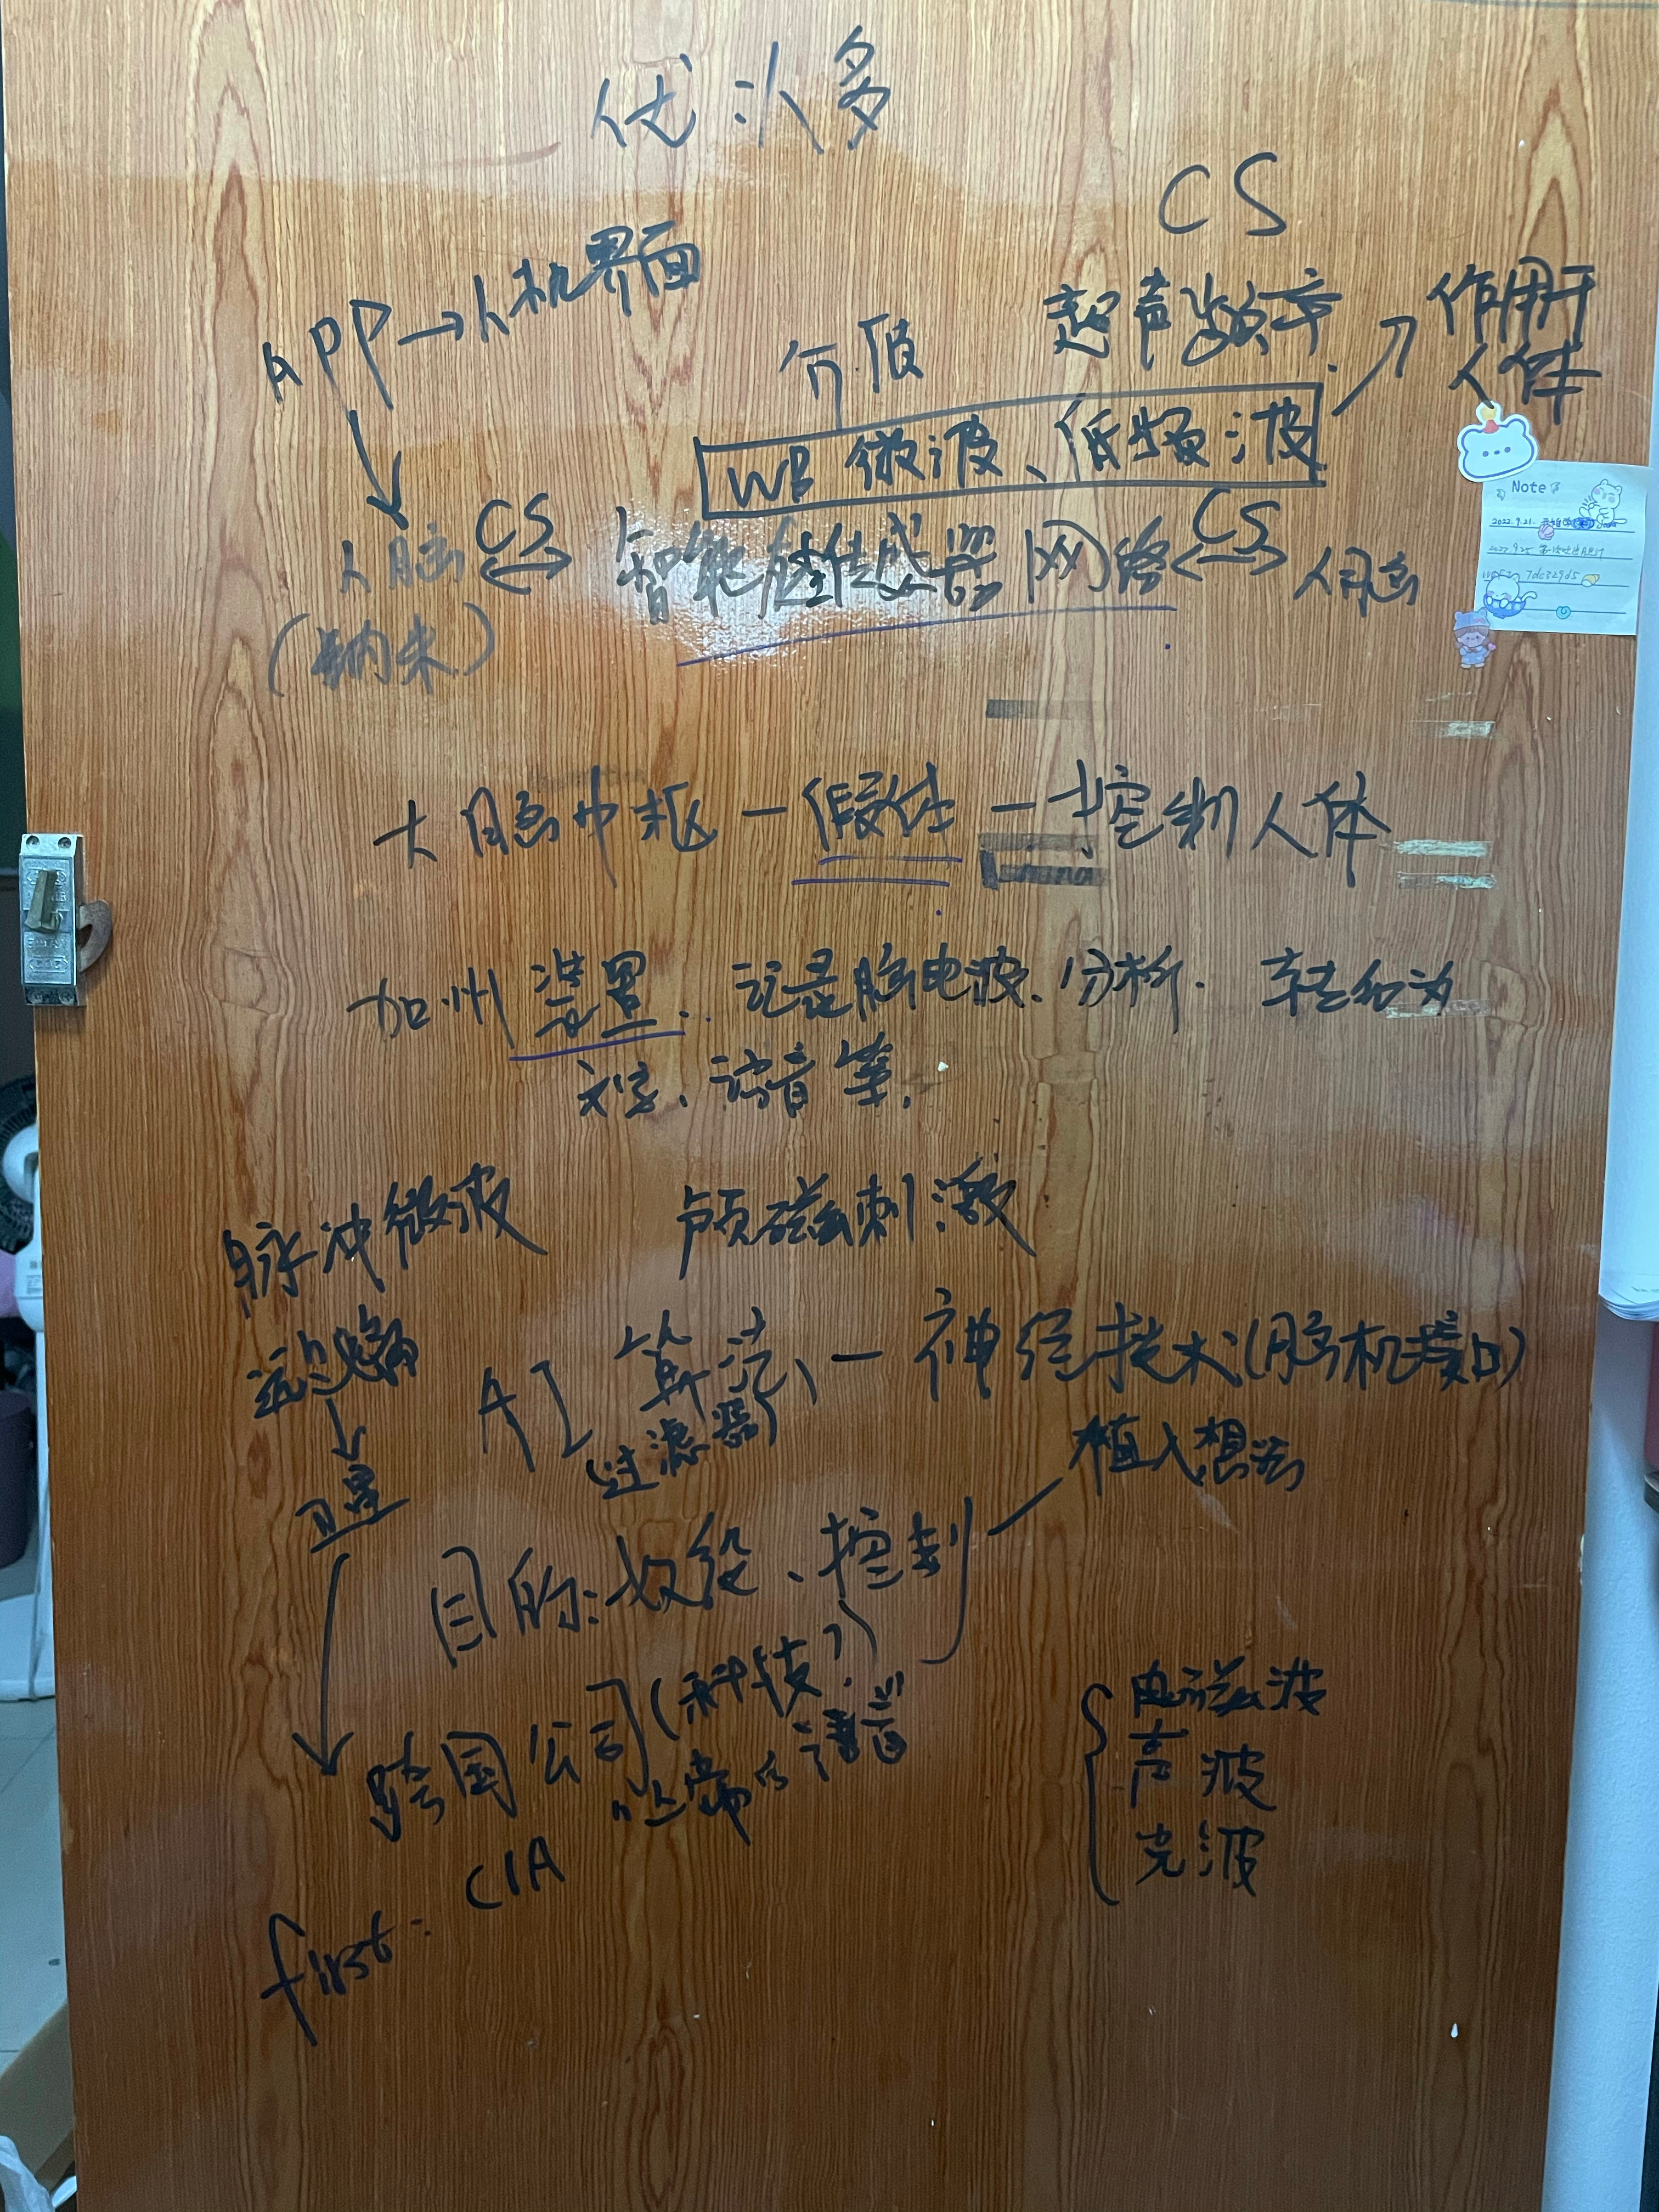 优冰多
CS
APP→人机界面
介质
超声频率
作用于
人体
WB 微波、低频波
人脑 CS 智能硅传感器网络 CS 人脑
(纳米)
Note
2022.9.21.
7dc329d5
大脑中枢－假体－控制人体
加州装置.. 记录脑电波、分析. 转台为
文字、语音等.
脉冲微波 颅磁刺激
远场
AI 算法、－神经技术(脑机接口)
(过滤器)
植入想法
卫星
目的:奴役、控制
跨国公司(科技?)
CIA
电磁波
声波
光波
first: